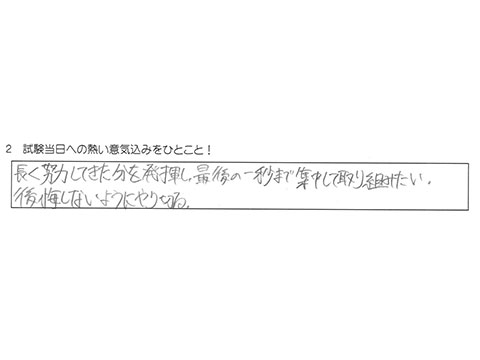 2 試験当日への熱い意気込みをひとこと！
長く努力してきた分を発揮し、最後の一秒まで集中して取り組みたい。
後悔しないようにやり切る。